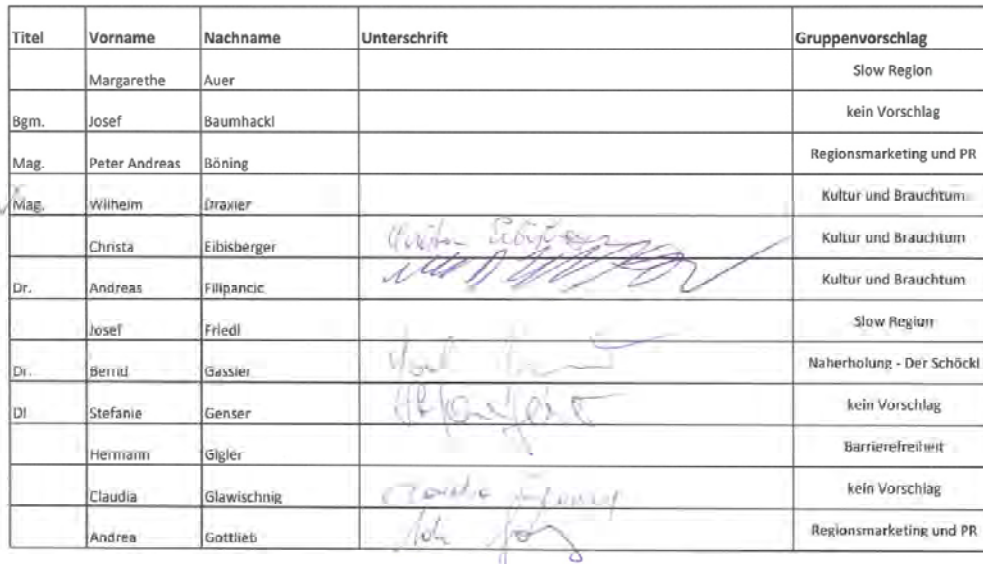 Titel Vorname Nachname Unterschrift Gruppenvorschlag
Margarethe Auer Slow Region
Bgm. Josef Baumhackl kein Vorschlag
Mag. Peter Andreas Böning Regionsmarketing und PR
Mag. Wilhelm Draxler Kultur und Brauchtum
Christa Eibisberger Kultur und Brauchtum
Dr. Andreas Filipancic Kultur und Brauchtum
Josef Friedl Slow Region
Dr. Bernd Gassler Naherholung - Der Schöckl
DI Stefanie Genser kein Vorschlag
Hermann Gigler Barrierefreiheit
Claudia Glawischnig kein Vorschlag
Andrea Gottlieb Regionsmarketing und PR